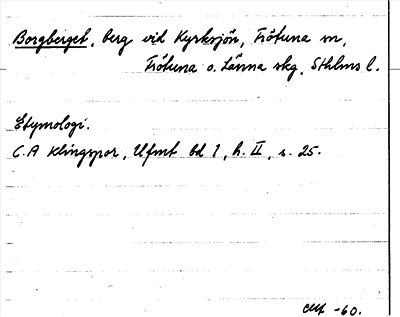 Borgberget, berg vid Kyrksjön, Frötuna sn,
Frötuna o. Länna skg, Sthlms l.
Etymologi.
C.A Klingspor, Ufmt bd 1, h. II, s. 25.
-60.